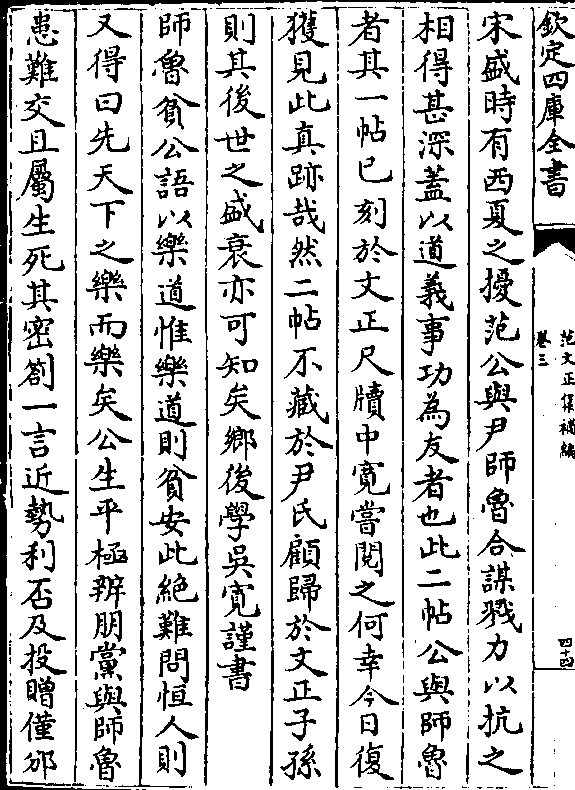 欽定四庫全書
范文正集補編
卷三
四十四
宋盛時有西夏之擾范公與尹師魯合謀戮力以抗之
相得甚深蓋以道義事功為友者也此二帖公與師魯
者其一帖已刻於文正尺牘中寬嘗閱之何幸今日復
獲見此真跡哉然二帖不藏於尹氏顧歸於文正子孫
則其後世之盛衰亦可知矣鄉後學吳寬謹書
師魯貧公語以樂道惟樂道則貧安此絕難問恒人則
又得曰先天下之樂而樂矣公生平極辨朋黨與師魯
患難交且屬生死其密劄一言近勢利否及投贈僅邠